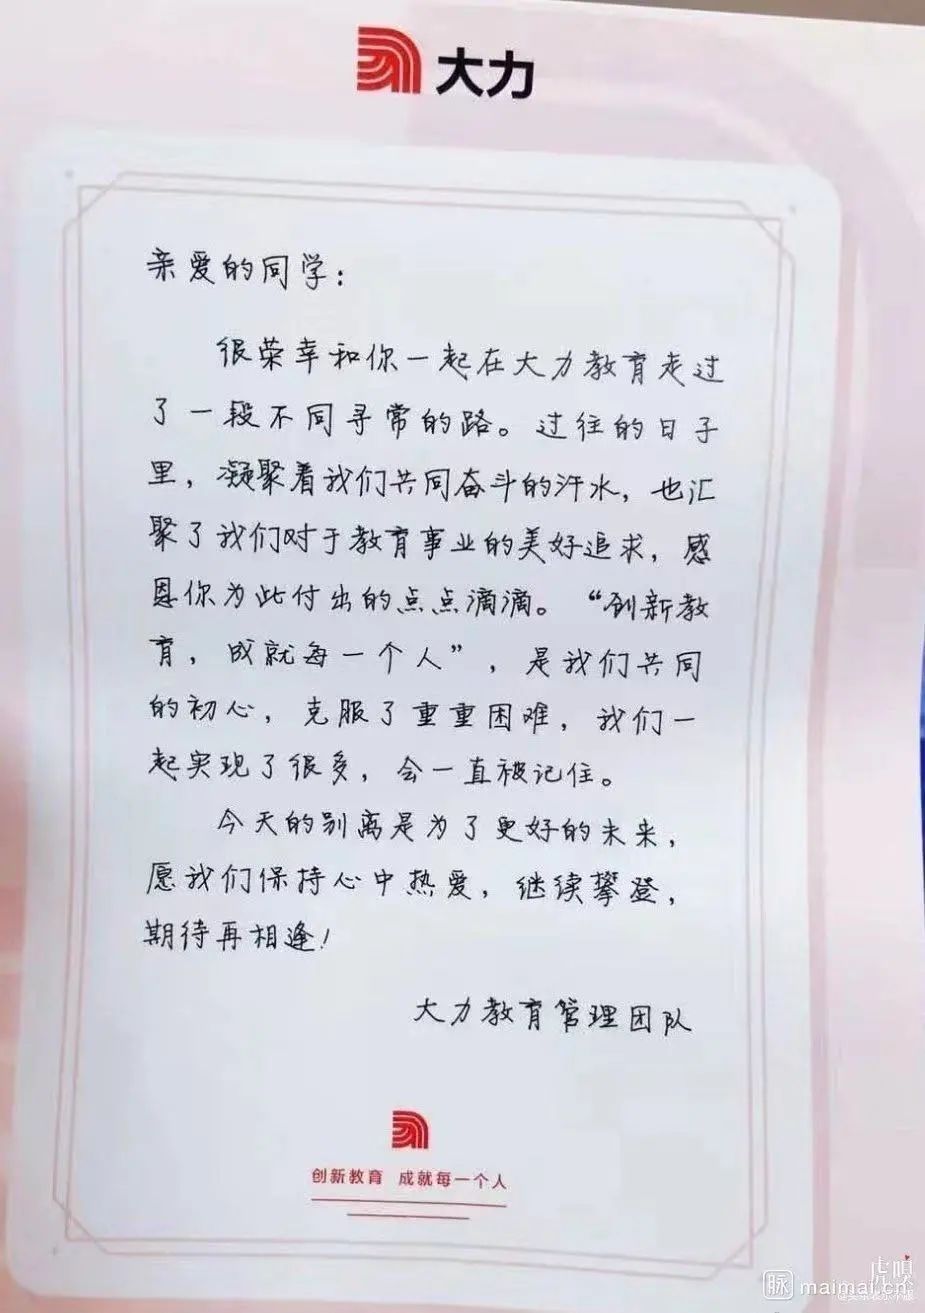 大力
亲爱的同学：
很荣幸和你一起在大力教育走过
了一段不同寻常的路。过往的日子
里，凝聚着我们共同奋斗的汗水，也汇
聚了我们对于教育事业的美好追求，感
恩你为此付出的点点滴滴。“创新教
育，成就每一个人”，是我们共同
的初心，克服了重重困难，我们一
起实现了很多，会一直被记住。
今天的别离是为了更好的未来，
愿我们保持心中热爱，继续攀登，
期待再相逢！
大力教育管理团队
创新教育 成就每一个人
虎嗅
脉 maimai.cn